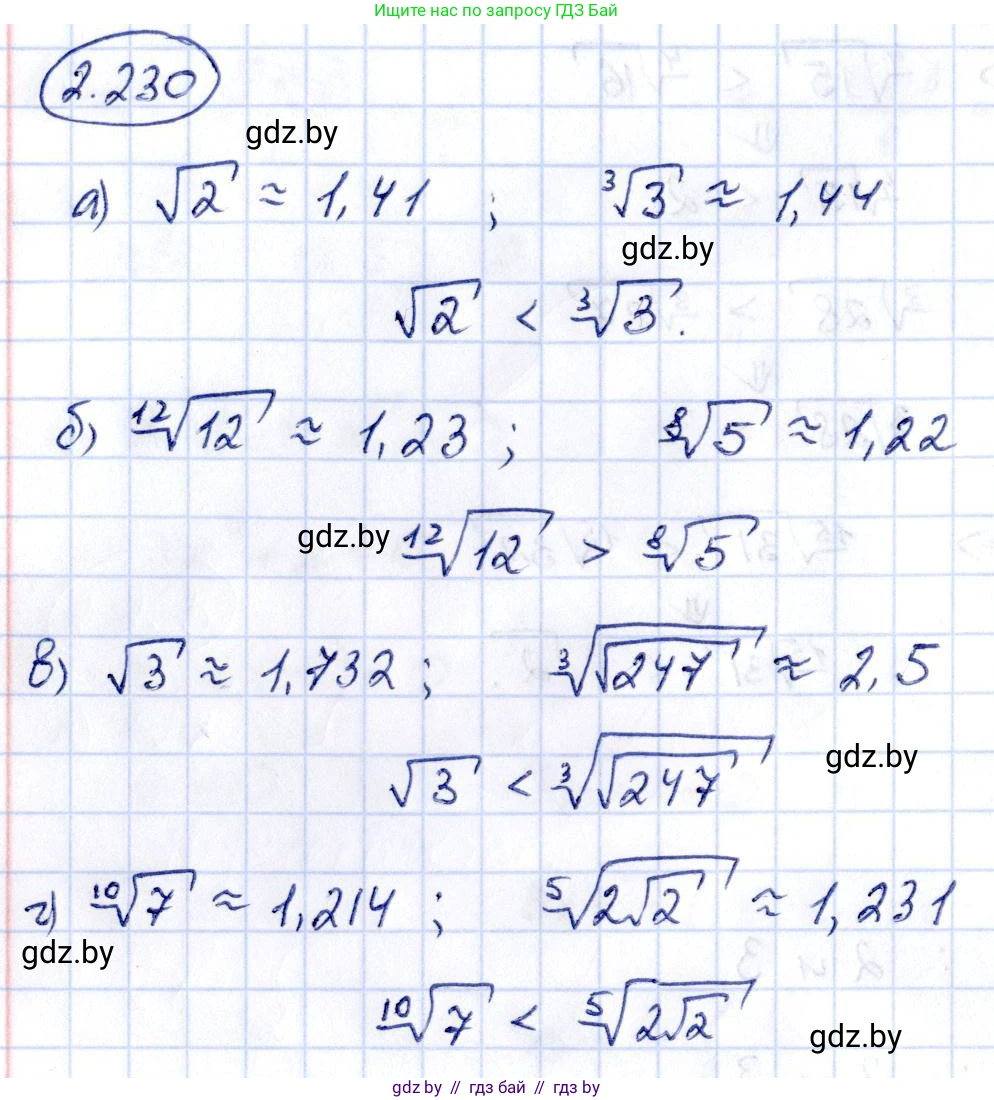 Ищите нас по запросу ГДЗ Бай
2.230
gdz.by
а) √2 ≈ 1,41 ; ∛3 ≈ 1,44
gdz.by
√2 < ∛3.
б) ¹²√12 ≈ 1,23 ; ⁸√5 ≈ 1,22
gdz.by ¹²√12 > ⁸√5
в) √3 ≈ 1,732 ; ∛(√247) ≈ 2,5
gdz.by
√3 < ∛(√247)
г) ¹⁰√7 ≈ 1,214 ; ⁵√(2√2) ≈ 1,231
gdz.by
¹⁰√7 < ⁵√(2√2)
gdz.by
gdz.by // гдз бай // gdz by